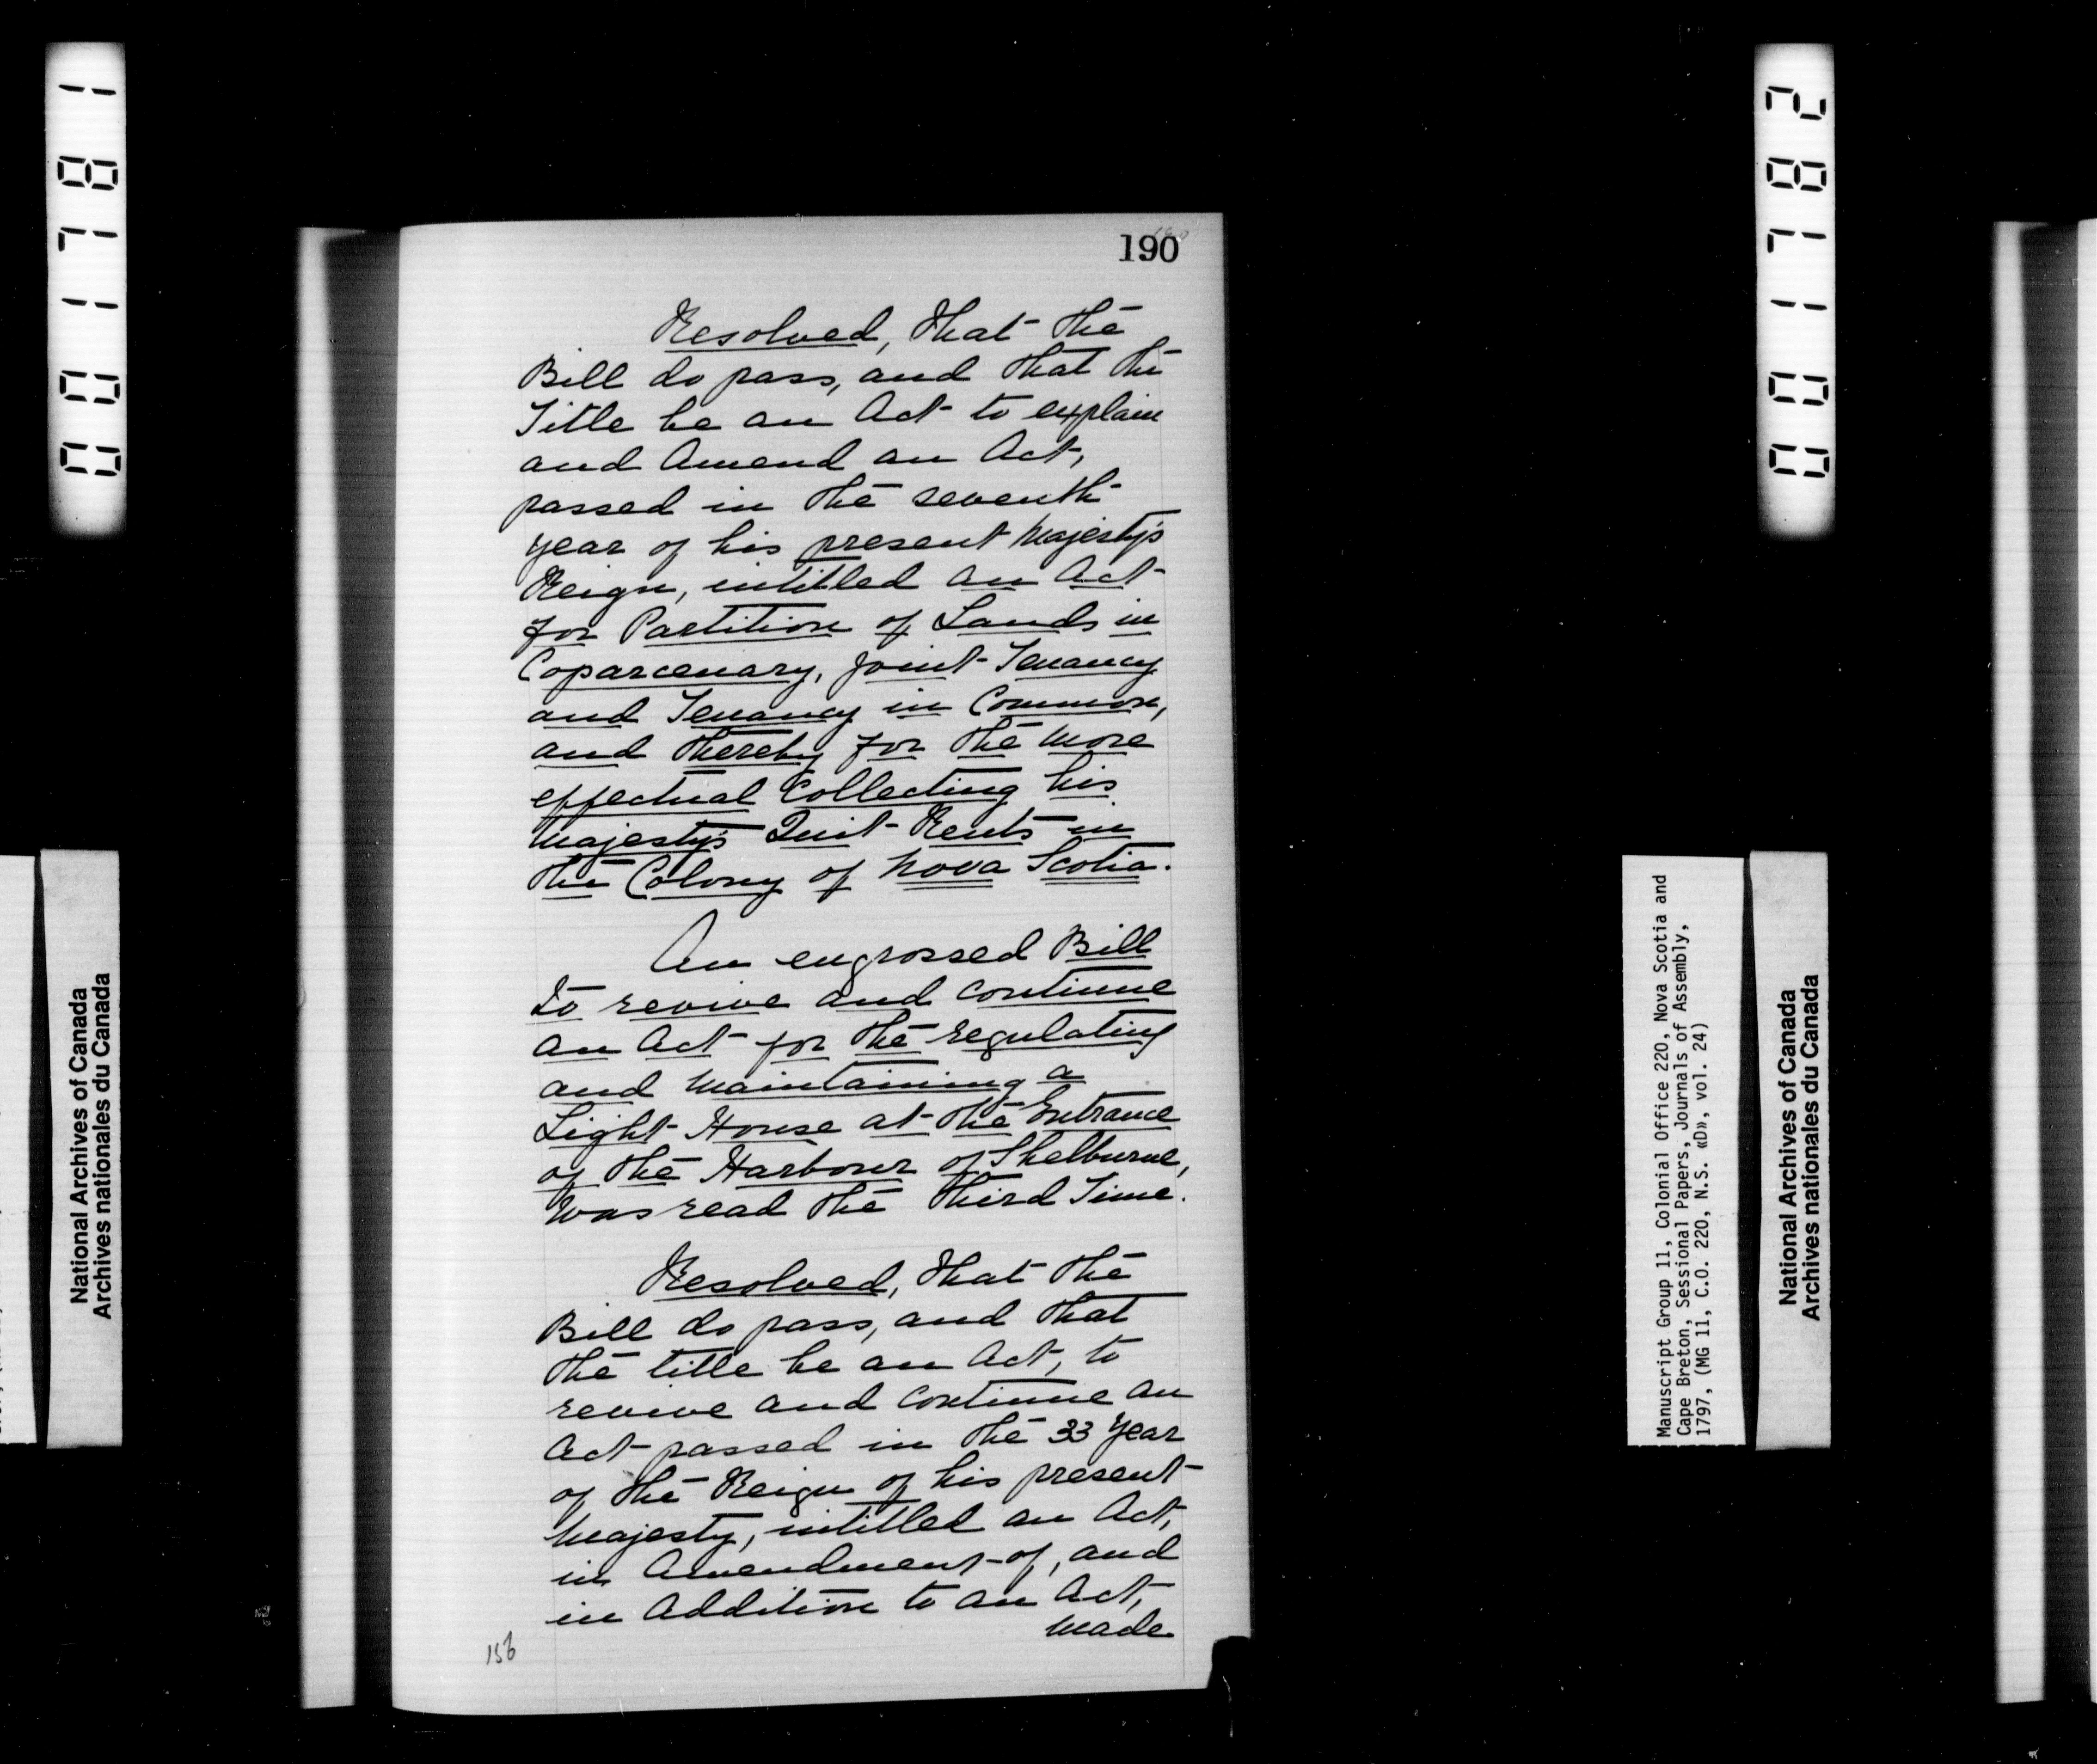 001781
National Archives of Canada
Archives nationales du Canada
190
Resolved, that the
Bill do pass, and that the
Title be an Act to explain
and Amend an Act,
passed in the seventh
year of his present Majesty's
Reign, intitled an Act
for Partition of Lands in
Coparcenary, Joint Tenancy
and Tenancy in Common,
and thereby for the more
effectual Collecting his
Majesty's Quit Rents in
the Colony of Nova Scotia.
An engrossed Bill
to revive and continue
an Act for the regulating
and Maintaining a
Light House at the Entrance
of the Harbour of Shelburne,
Was read the third Time.
Resolved, that the
Bill do pass, and that
the title be an Act, to
revive and continue an
Act passed in the 33 Year
of the Reign of his present
Majesty, intitled an Act,
in Amendment of, and
in Addition to an Act,
made
156
001782
Manuscript Group 11, Colonial Office 220, Nova Scotia and
Cape Breton, Sessional Papers, Journals of Assembly,
1797, (MG 11, C.O. 220, N.S. «D», vol. 24)
National Archives of Canada
Archives nationales du Canada